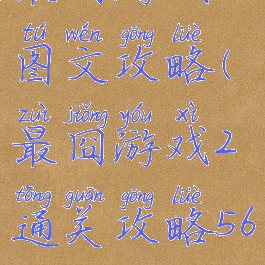 tú wén gōng lüè
图文攻略(
zuì jiǒng yóu xì
最囧游戏2
tōng guān gōng lüè
通关攻略56